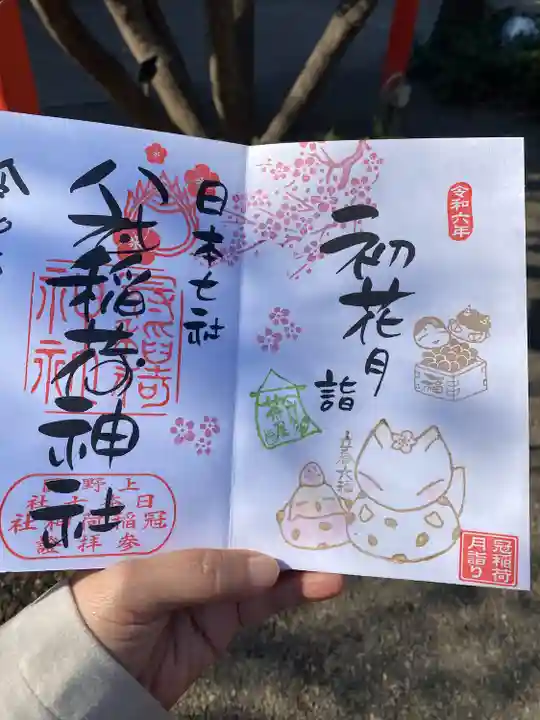 令和六年
初花月
詣
福
立春大福
冠稲荷
月詣り
日本七社
冠稲荷神社
上野国
日本七社
冠稲荷神社
参拝證